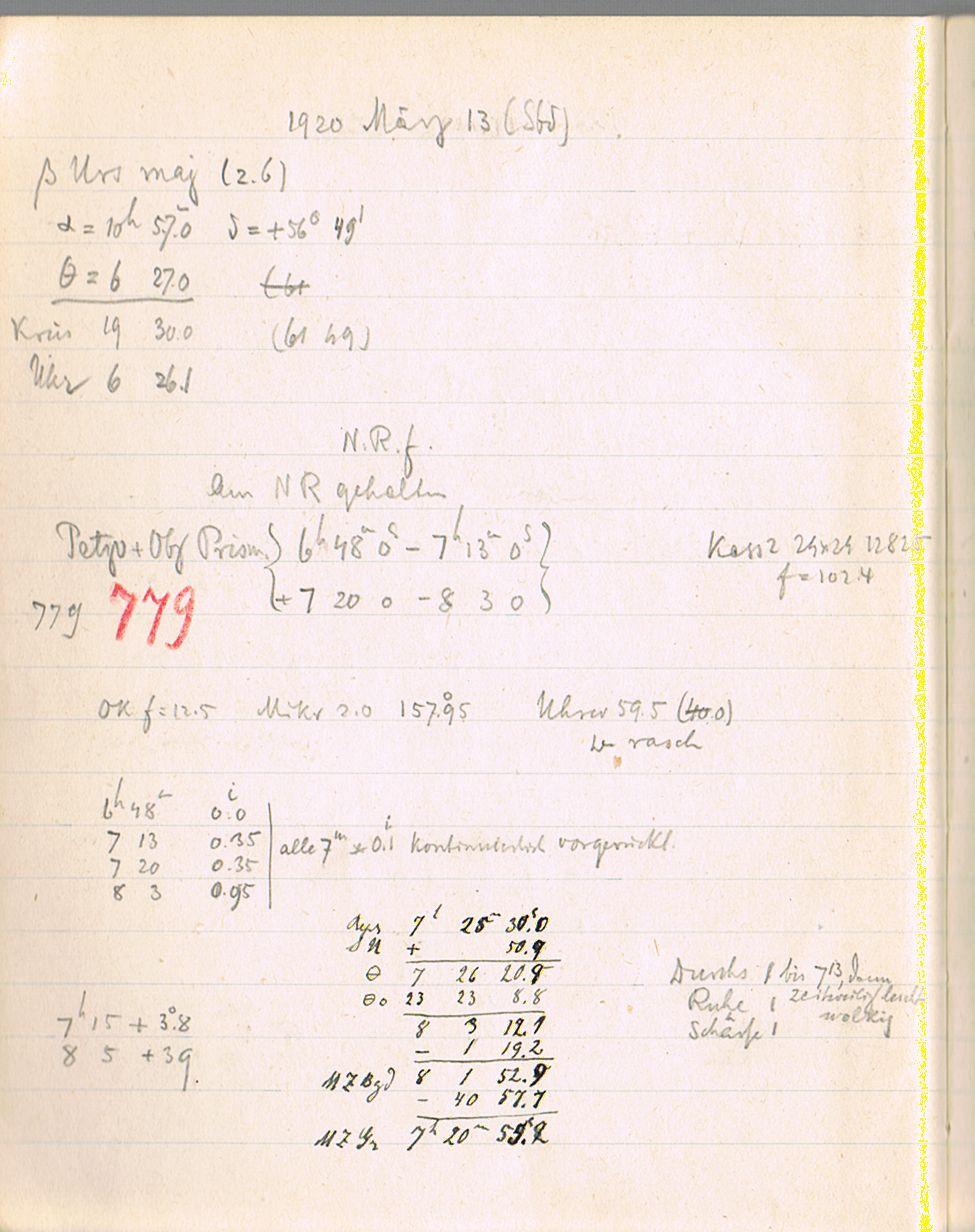 1920 März 13 (Sbd)
β Urs maj (2.6)
α = 10h 57.0 δ = +56° 49'
θ = 6 27.0 (61
Kreis 19 30.0 (61 49)
Uhr 6 26.1
N.R.f.
Am NR gehalten
Petzv + Obj Prism { 6h 48m 0s – 7h 13m 0s }
{ + 7 20 0 – 8 3 0 }
Kass 2 24x24 12825
f = 102.4
779 779
OK f = 12.5 Mikr 2.0 157.°95 Uhrw 59.5 (40.0)
rasch
6h 48m 0.i0
7 13 0.35
7 20 0.35
8 3 0.95
alle 7m 0.i1 kontinuierlich vorgerückt.
7h 25m 30.s0
+ 50.9
θ 7 26 20.9
θo 23 23 8.8
8 3 12.1
– 1 19.2
MZ Bgd 8 1 52.9
– 40 57.7
MZ Gr 7h 20m 55.s2
Durchs 1 bis 7 13, dann
Ruhe 1 zeitweilig leicht
wolkig
Schärfe 1
7h 15 + 3.°8
8 5 + 3.9